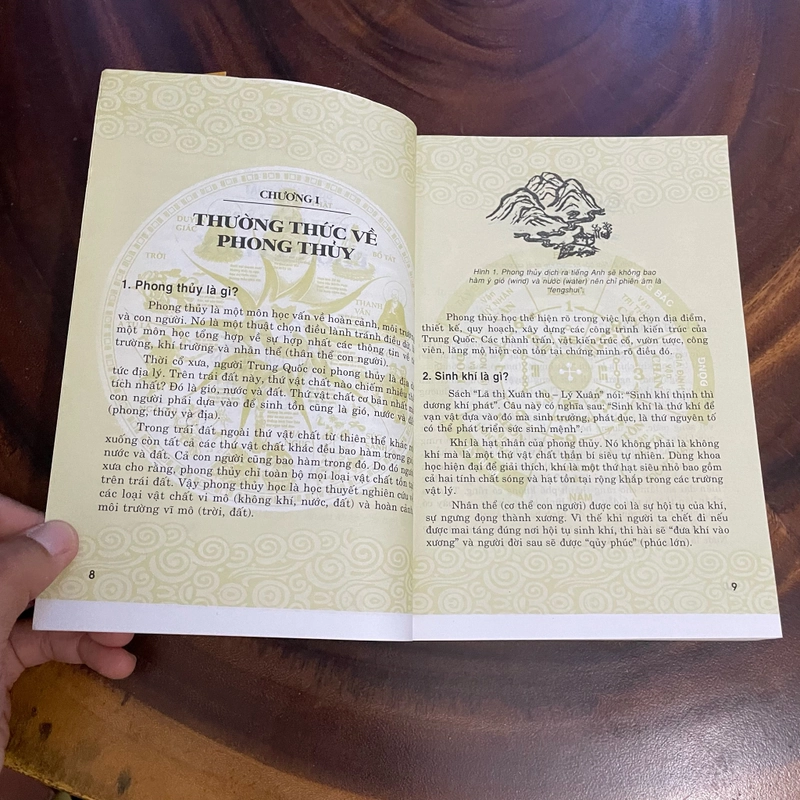 CHƯƠNG I
THƯỜNG THỨC VỀ
PHONG THỦY
1. Phong thủy là gì?
Phong thủy là một môn học vấn về hoàn cảnh, môi trườ
và con người. Nó là một thuật chọn điều lành tránh điều dữ,
một môn học tổng hợp về sự hợp nhất các thông tin về
trường, khí trường và nhân thể (thân thể con người).
Thời cổ xưa, người Trung Quốc coi phong thủy là địa
tức địa lý. Trên trái đất này, thứ vật chất nào chiếm nhiều
tích nhất? Đó là gió, nước và đất. Thứ vật chất cơ bản nhất mà
con người phải dựa vào để sinh tồn cũng là gió, nước và đất
(phong, thủy và địa).
Trong trái đất ngoài thứ vật chất từ thiên thể khác
xuống còn tất cả các thứ vật chất khác đều bao hàm trong
nước và đất. Cả con người cũng bao hàm trong đó. Do đó người
xưa cho rằng, phong thủy chỉ toàn bộ mọi loại vật chất tồn tại
trên trái đất. Vậy phong thủy học là học thuyết nghiên cứu về
các loại vật chất vi mô (không khí, nước, đất) và hoàn cảnh
môi trường vĩ mô (trời, đất).
8
Hình 1. Phong thủy dịch ra tiếng Anh sẽ không bao
hàm ý gió (wind) và nước (water) nên chỉ phiên âm là
"fengshui".
Phong thủy học thể hiện rõ trong việc lựa chọn địa điểm,
thiết kế, quy hoạch, xây dựng các công trình kiến trúc của
Trung Quốc. Các thành trấn, vật kiến trúc cổ, vườn tược, công
viên, lăng mộ hiện còn tồn tại chứng minh rõ điều đó.
2. Sinh khí là gì?
Sách "Lã thị Xuân thu – Lý Xuân" nói: "Sinh khí thịnh thì
dương khí phát". Câu này có nghĩa sau: "Sinh khí là thứ khí để
vạn vật dựa vào đó mà sinh trưởng, phát dục, là thứ nguyên tố
có thể phát triển sức sinh mệnh".
Khí là hạt nhân của phong thủy. Nó không phải là không
khí mà là một thứ vật chất thần bí siêu tự nhiên. Dùng khoa
học hiện đại để giải thích, khí là một thứ hạt siêu nhỏ bao gồm
cả hai tính chất sóng và hạt tồn tại rộng khắp trong các trường
vật lý.
Nhân thể (cơ thể con người) được coi là sự hội tụ của khí,
sự ngưng đọng thành xương. Vì thế khi người ta chết đi nếu
được mai táng đúng nơi hội tụ sinh khí, thi hài sẽ "đưa khí vào
xương" và người đời sau sẽ được "qủy phúc" (phúc lớn).
9